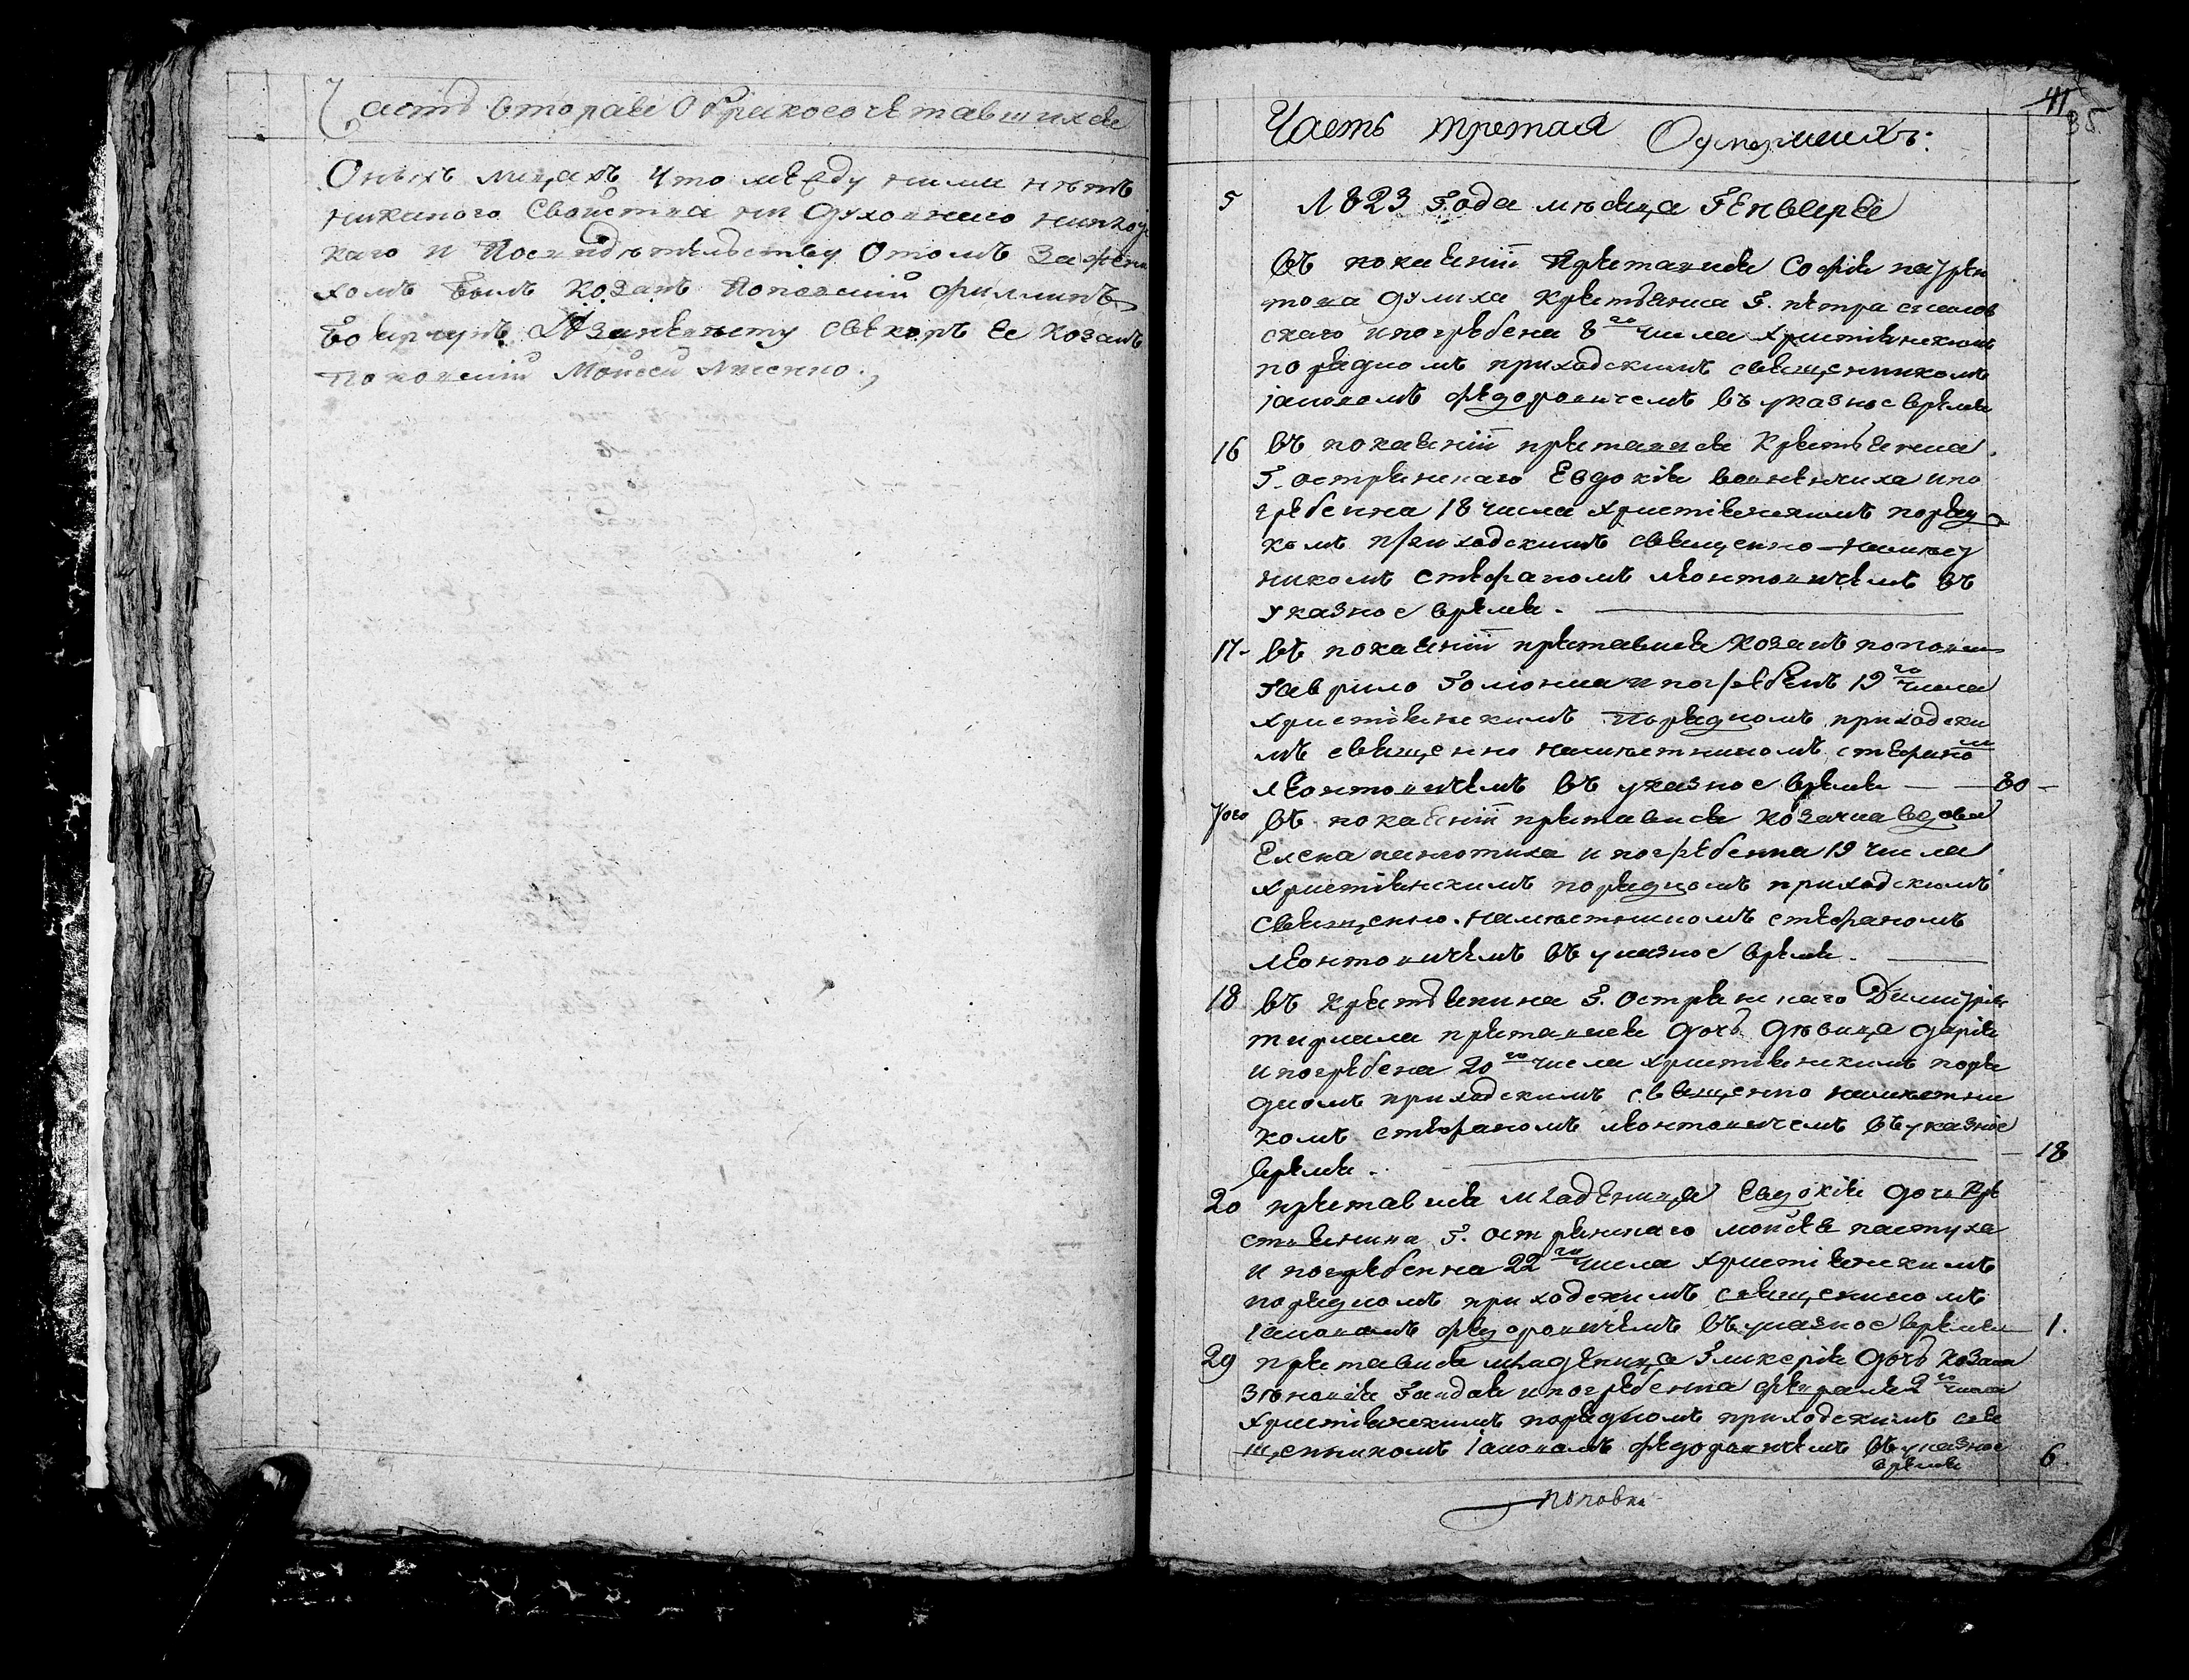 Часть вторая О бракосочетавшихся
Оныхъ лицахъ что между ними нетъ
никакого свойства ни духовнаго ни
каго и По свидетельству Отомъ за
хомъ былъ козакъ Поповский филипъ
свекоръ Ее козакъ
Поповский Мойсей Лисенко.
41
35
Часть третая О умершихъ:
5 1823 Года месяца Генваря
въ покаяніи Преставися Софія
Крестянка Г. Петра
скаго и погребена 8го числа христіянскимъ
порядкомъ приходскимъ священникомъ
іаковомъ федоровичемъ въ указное время
16 въ покаяніи преставися Крестьянка
Г. остранскаго Евдокія и по
гребенна 18 числа христіянскимъ поряд
комъ приходскимъ священно-намест
никомъ стефаномъ леонтовичемъ въ
указное время.
17- въ покаяніи преставися козакъ поповки
Гаврило и погребенъ 19го числа
христіянскимъ порядкомъ приходски
мъ священно наместникомъ стефаном
леонтовичемъ въ указное время — 80 -
того въ покаяніи преставися козачка вдова
Елена и погребенна 19 числа
христіянскимъ порядкомъ приходскимъ
священно-наместникомъ стефаномъ
леонтовичемъ въ указное время.
18 въ крестьянина Г. остранскаго Димитрія
преставися дочь девица дарія
и погребена 20го числа христіянскимъ поря
дкомъ приходскимъ священно наместни
комъ стефаномъ леонтовичемъ въ указное
время. — 18
20 преставися младеница Евдокія дочь кре
стьянина Г. остранскаго мойсея пастуха
и погребенна 22го числа христіянскимъ
порядкомъ приходскимъ священникомъ
іаковомъ федоровичемъ въ указное время 1.
29 преставися младеница Гликерія дочь козака
зѣновія и погребенна февраля 2го числа
христіянскимъ порядкомъ приходскимъ свя
щенникомъ іаковомъ федоровичемъ въ указное
время 6.
поповки